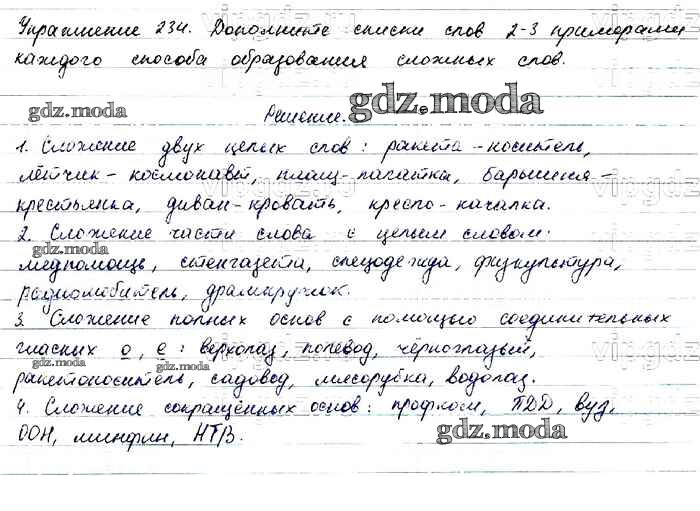 Упражнение 234. Дополните списки слов 2-3 примерами
каждого способа образования сложных слов.
gdz.moda
Решение.
gdz.moda
1. Сложение двух целых слов: ракета-носитель,
лётчик-космонавт, плащ-палатка, барышня-
крестьянка, диван-кровать, кресло-качалка.
2. Сложение части слова с целым словом:
gdz.moda
медпомощь, стенгазета, спецодежда, физкультура,
радиолюбитель, драмкружок.
3. Сложение полных основ с помощью соединительных
gdz.moda
гласных о, е: верхолаз, полевод, черноглазый,
gdz.moda
gdz.moda
ракетоноситель, садовод, мясорубка, водолаз.
4. Сложение сокращённых основ: профком, ПДД, вуз,
ООН, минфин, НТВ.
gdz.moda